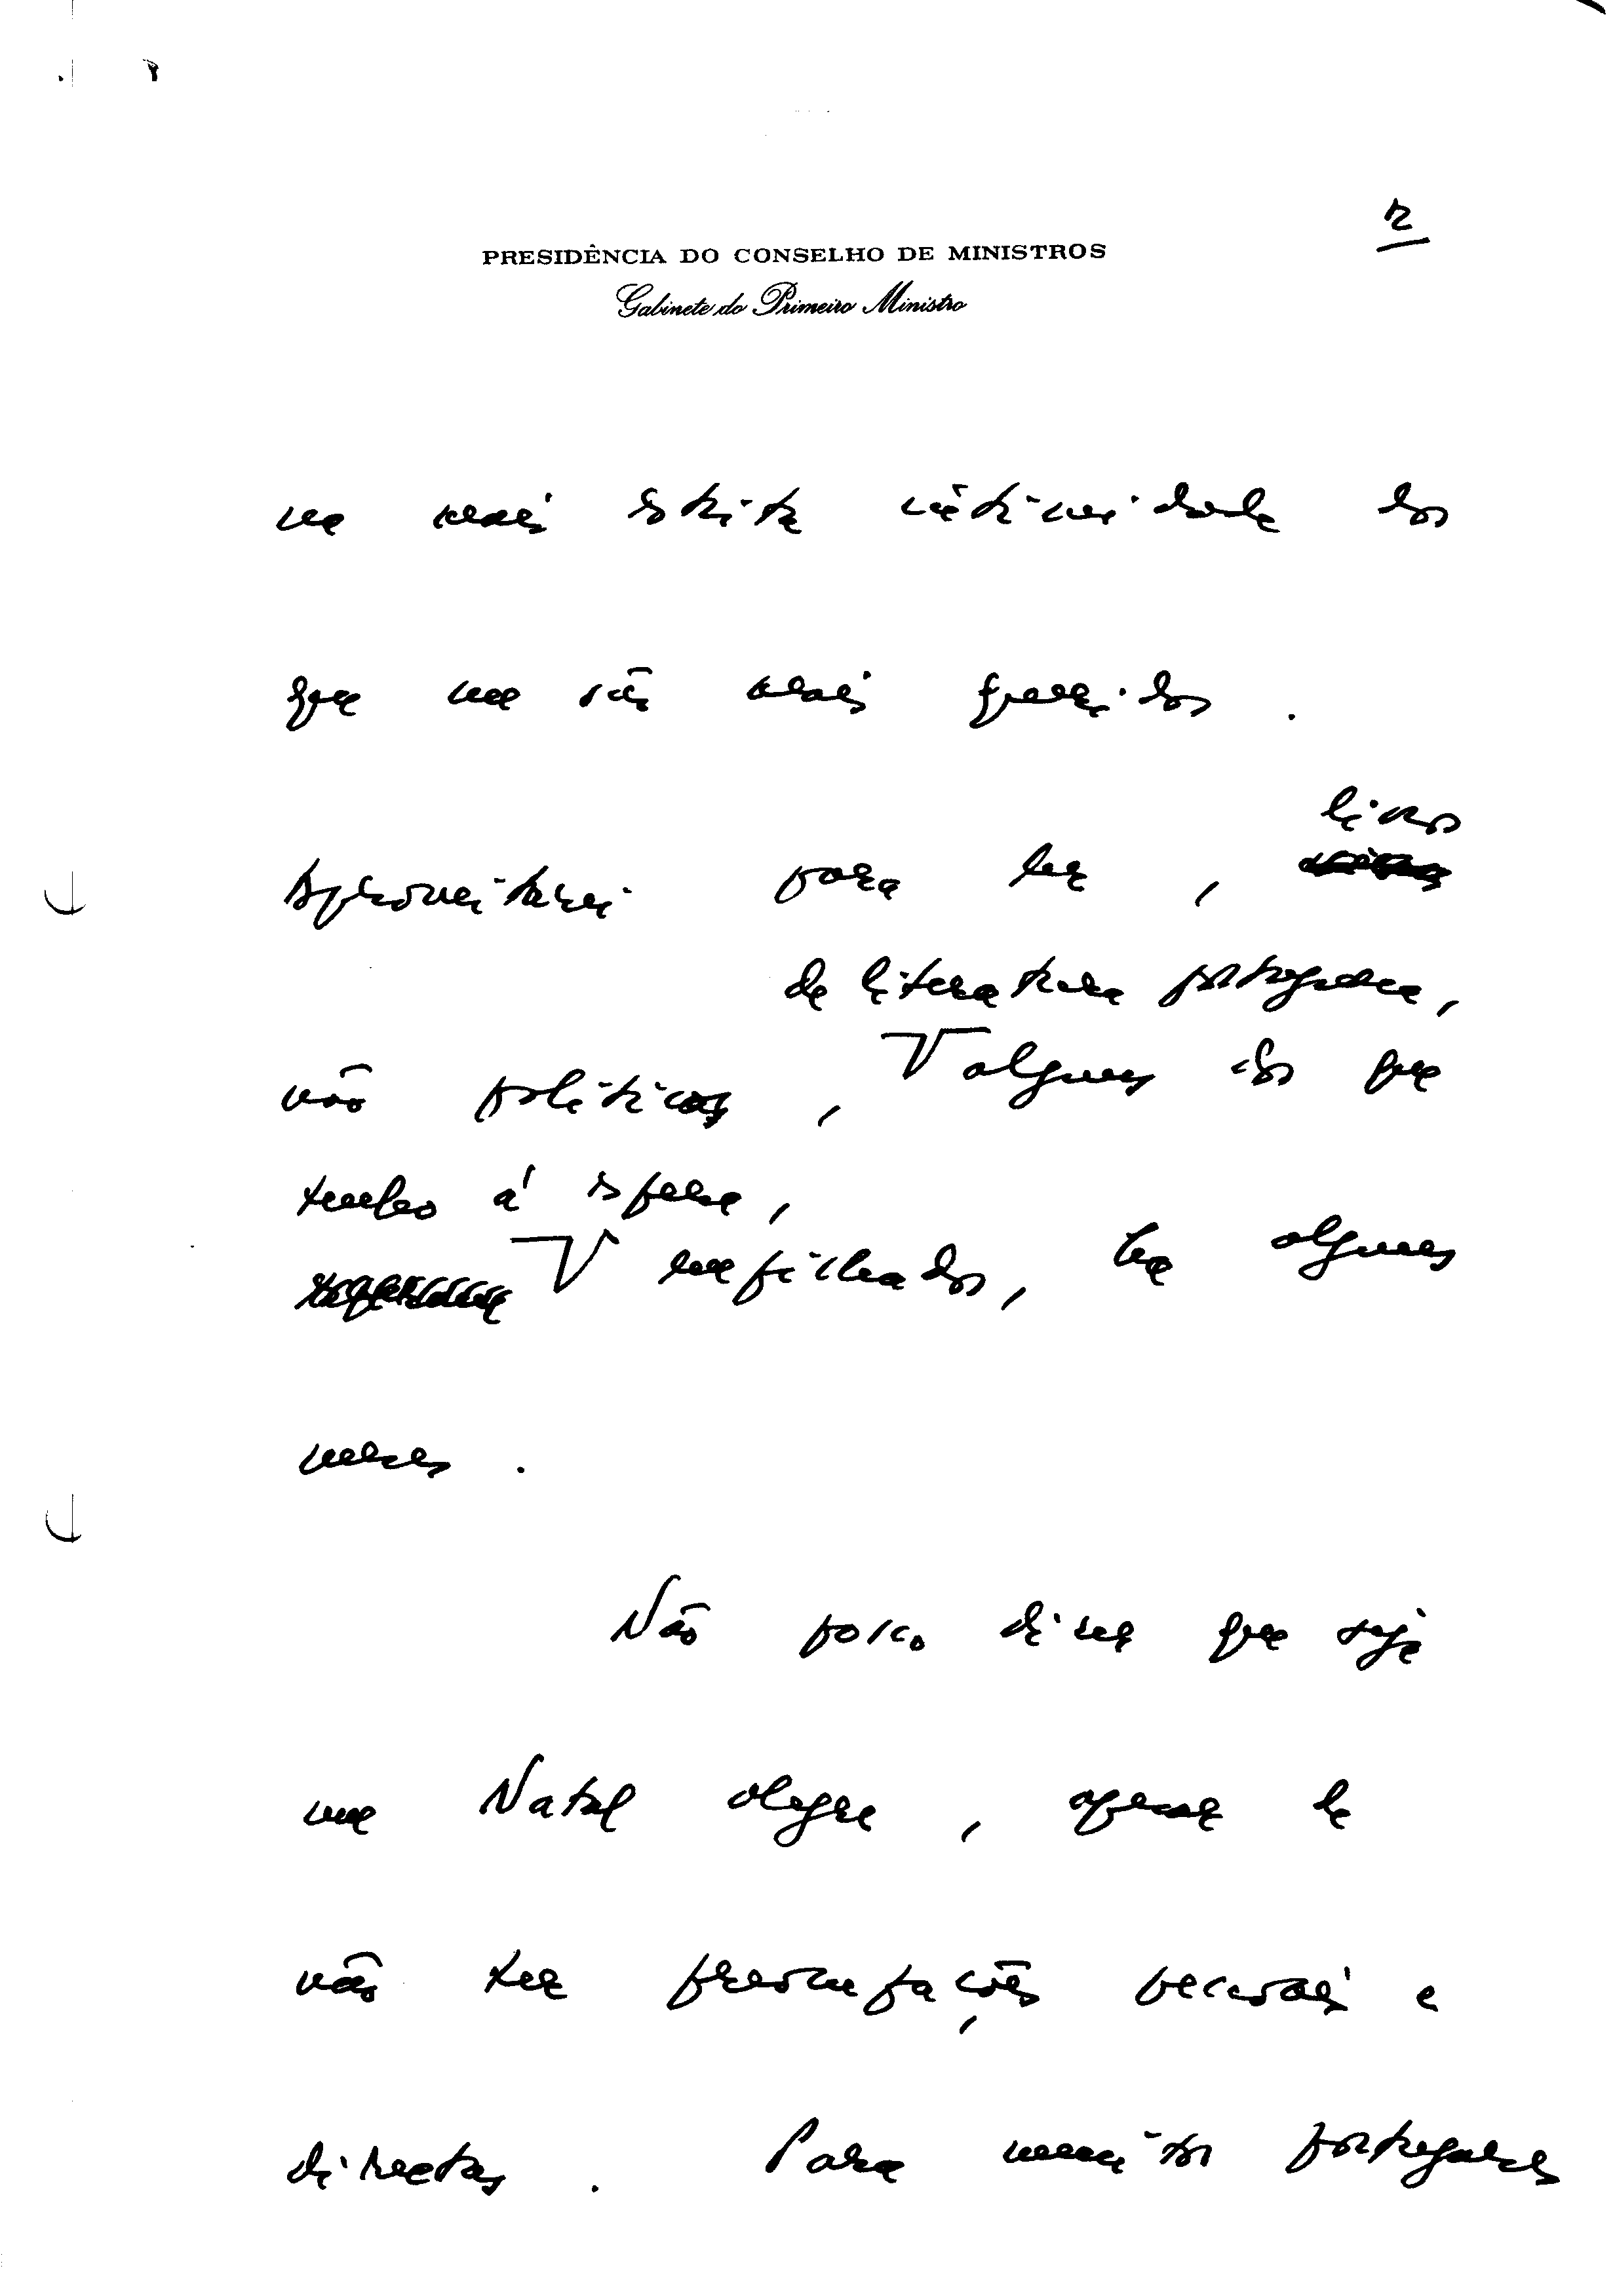 2
PRESIDÊNCIA DO CONSELHO DE MINISTROS
Gabinete do Primeiro Ministro
na mais estrita intimidade dos
que me são mais queridos.
livros
Aproveitarei para ler,
de literatura portuguesa,
não políticos, alguns dos que
tenho à espera,
empilhados, há alguns
meses.
Não posso dizer que seja
um Natal alegre, apesar de
não ter preocupações pessoais e
directas. Para muitos portugueses